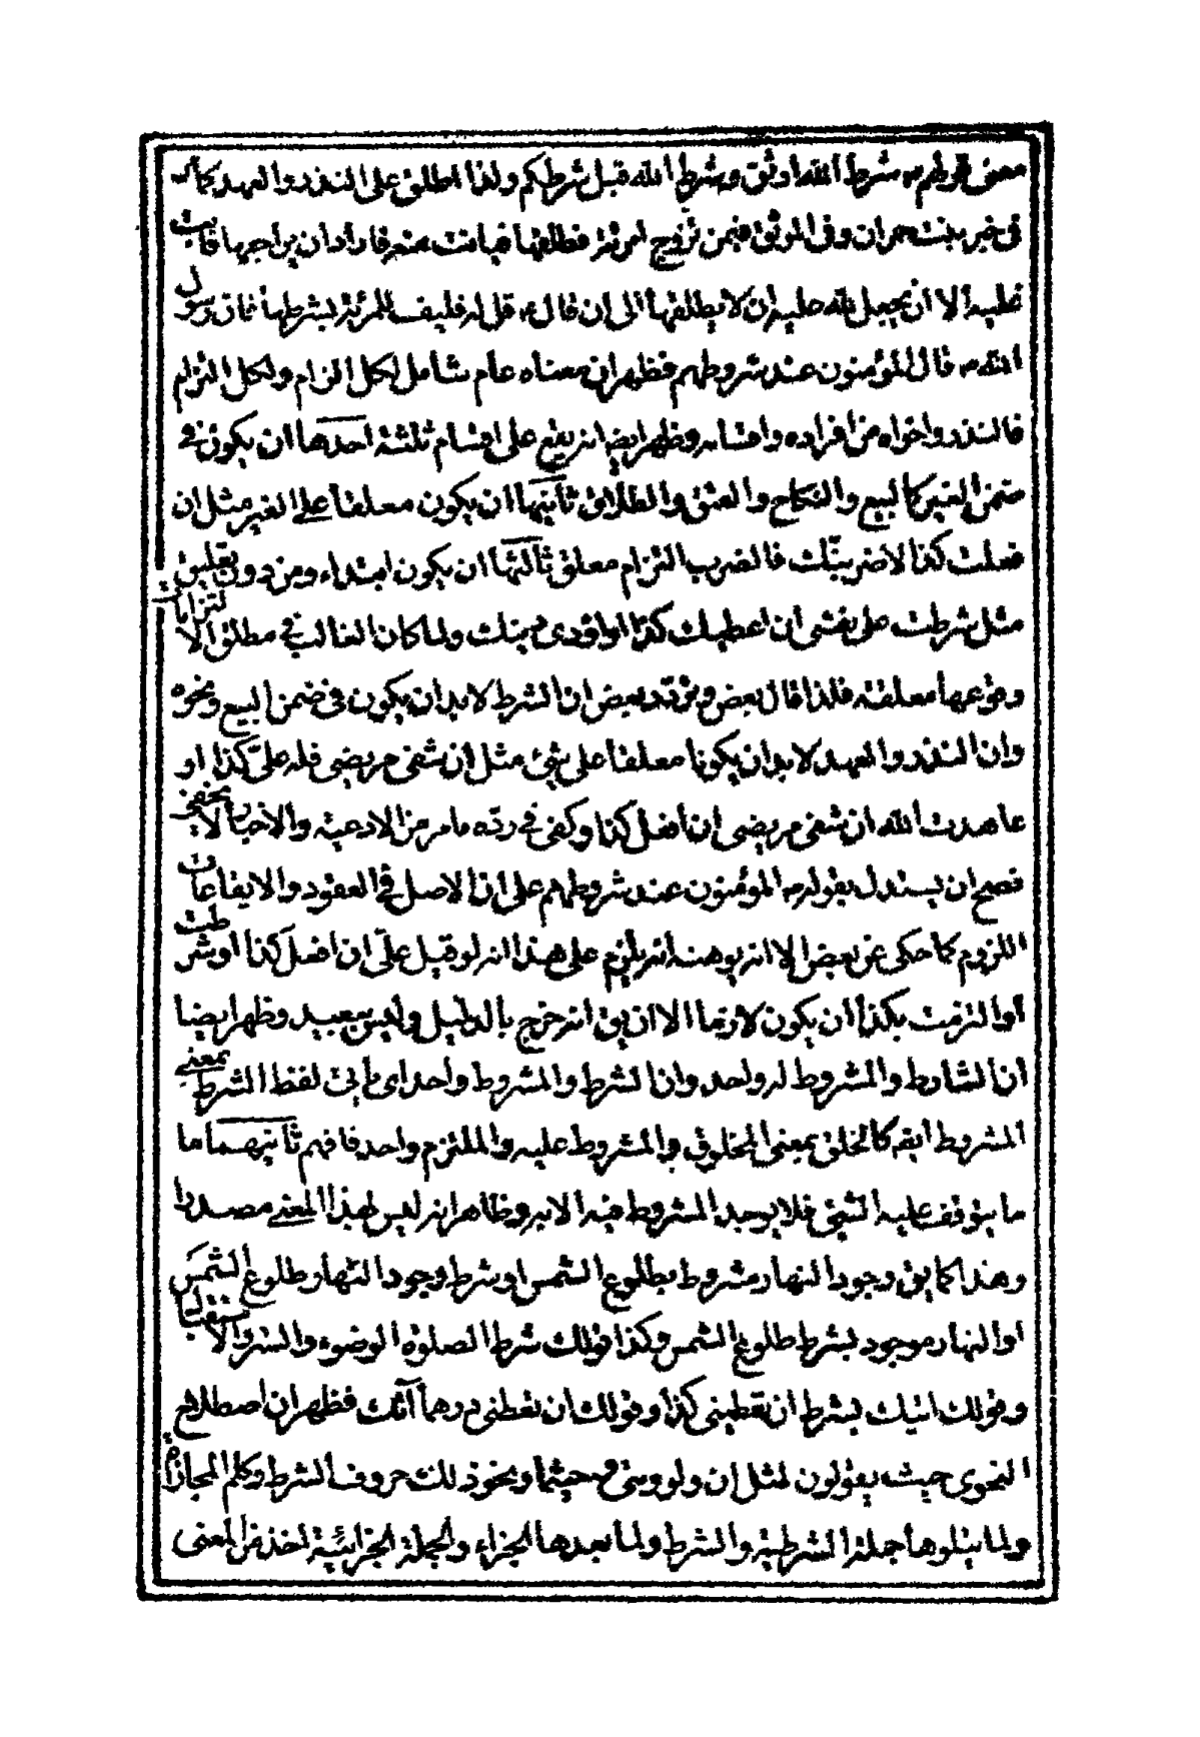 معنى قولهم ص شرط الله اوثق وشرط الله قبل شرطكم ولذا اطلق على النذر والعهد كما
فى خبر بنت حمران وفى الموثق فيمن تزوج امرئة فطلقها فبانت منه فاراد ان يراجعها فابت
عليه الا ان يجعل لله عليه ان لا يطلقها الى ان قال ع قل له فليف للمرئة بشرطها فان رسول
الله ص قال المؤمنون عند شروطهم فظهر ان معناه عام شامل لكل الزام ولكل التزام
فالنذر واخواه من افراده واقسامه وظهر ايضا انه يقع على اقسام ثلثة احدها ان يكون فى
ضمن الغير كالبيع والنكاح والعتق والطلاق ثانيها ان يكون معلقا على الغير مثل ان
فعلت كذا لاضربنك فالضرب التزام معلق ثالثها ان يكون ابتداء ومن دون تعليق
مثل شرطت على نفسى ان اعطيك كذا او اؤدى دينك ولما كان الغالب فى مطلق الالتزامات
وقوعها معلقة فلذا قال بعض وتردد بعض ان الشرط لا بد ان يكون فى ضمن البيع ونحوه
وان النذر والعهد لا بد ان يكونا معلقا على شئ مثل ان شفى مريضى فلله علىّ كذا او
عاهدت الله ان شفى مريضى ان افعل كذا وكفى فى ردّه ما مر من الادعية والاخبار كما لا يخفى
فصح ان يستدل بقوله ص المؤمنون عند شروطهم على ان الاصل فى العقود والايقاعات
اللزوم كما حكى عن بعض الا انه يوهنه انه يلزم على هذا انه لو قيل علىّ ان افعل كذا او شرطت
او التزمت بكذا ان يكون لازما الا ان يق انه خرج بالدليل وليس ببعيد وظهر ايضا
ان الشارط والمشروط له واحد وان الشرط والمشروط واحد اى ياتى لفظ الشرط بمعنى
المشروط ايضا كالخلق بمعنى المخلوق والمشروط عليه والملتزم واحد فافهم ثانيهما ما
ما يتوقف عليه الشئ فلا يوجد المشروط فيه الا به وظاهر انه ليس لهذا المعنى مصدر
وهذا كما يق وجود النهار مشروط بطلوع الشمس او شرط وجود النهار طلوع الشمس
او النهار موجود بشرط طلوع الشمس وكذا قولك شرط الصلوة الوضوء والستر والاستقبال
وقولك اتيك بشرط ان تعطينى كذا وقولك ان تعطنى درهما آتك فظهر ان اصطلاح
النحوى حيث يقولون لمثل ان ولو ومتى وحيثما ونحو ذلك حروف الشرط وكلم المجازاة
ولما يتلوها جملة الشرطية والشرط ولما بعدها الجزاء والجملة الجزائية اخذ من المعنى